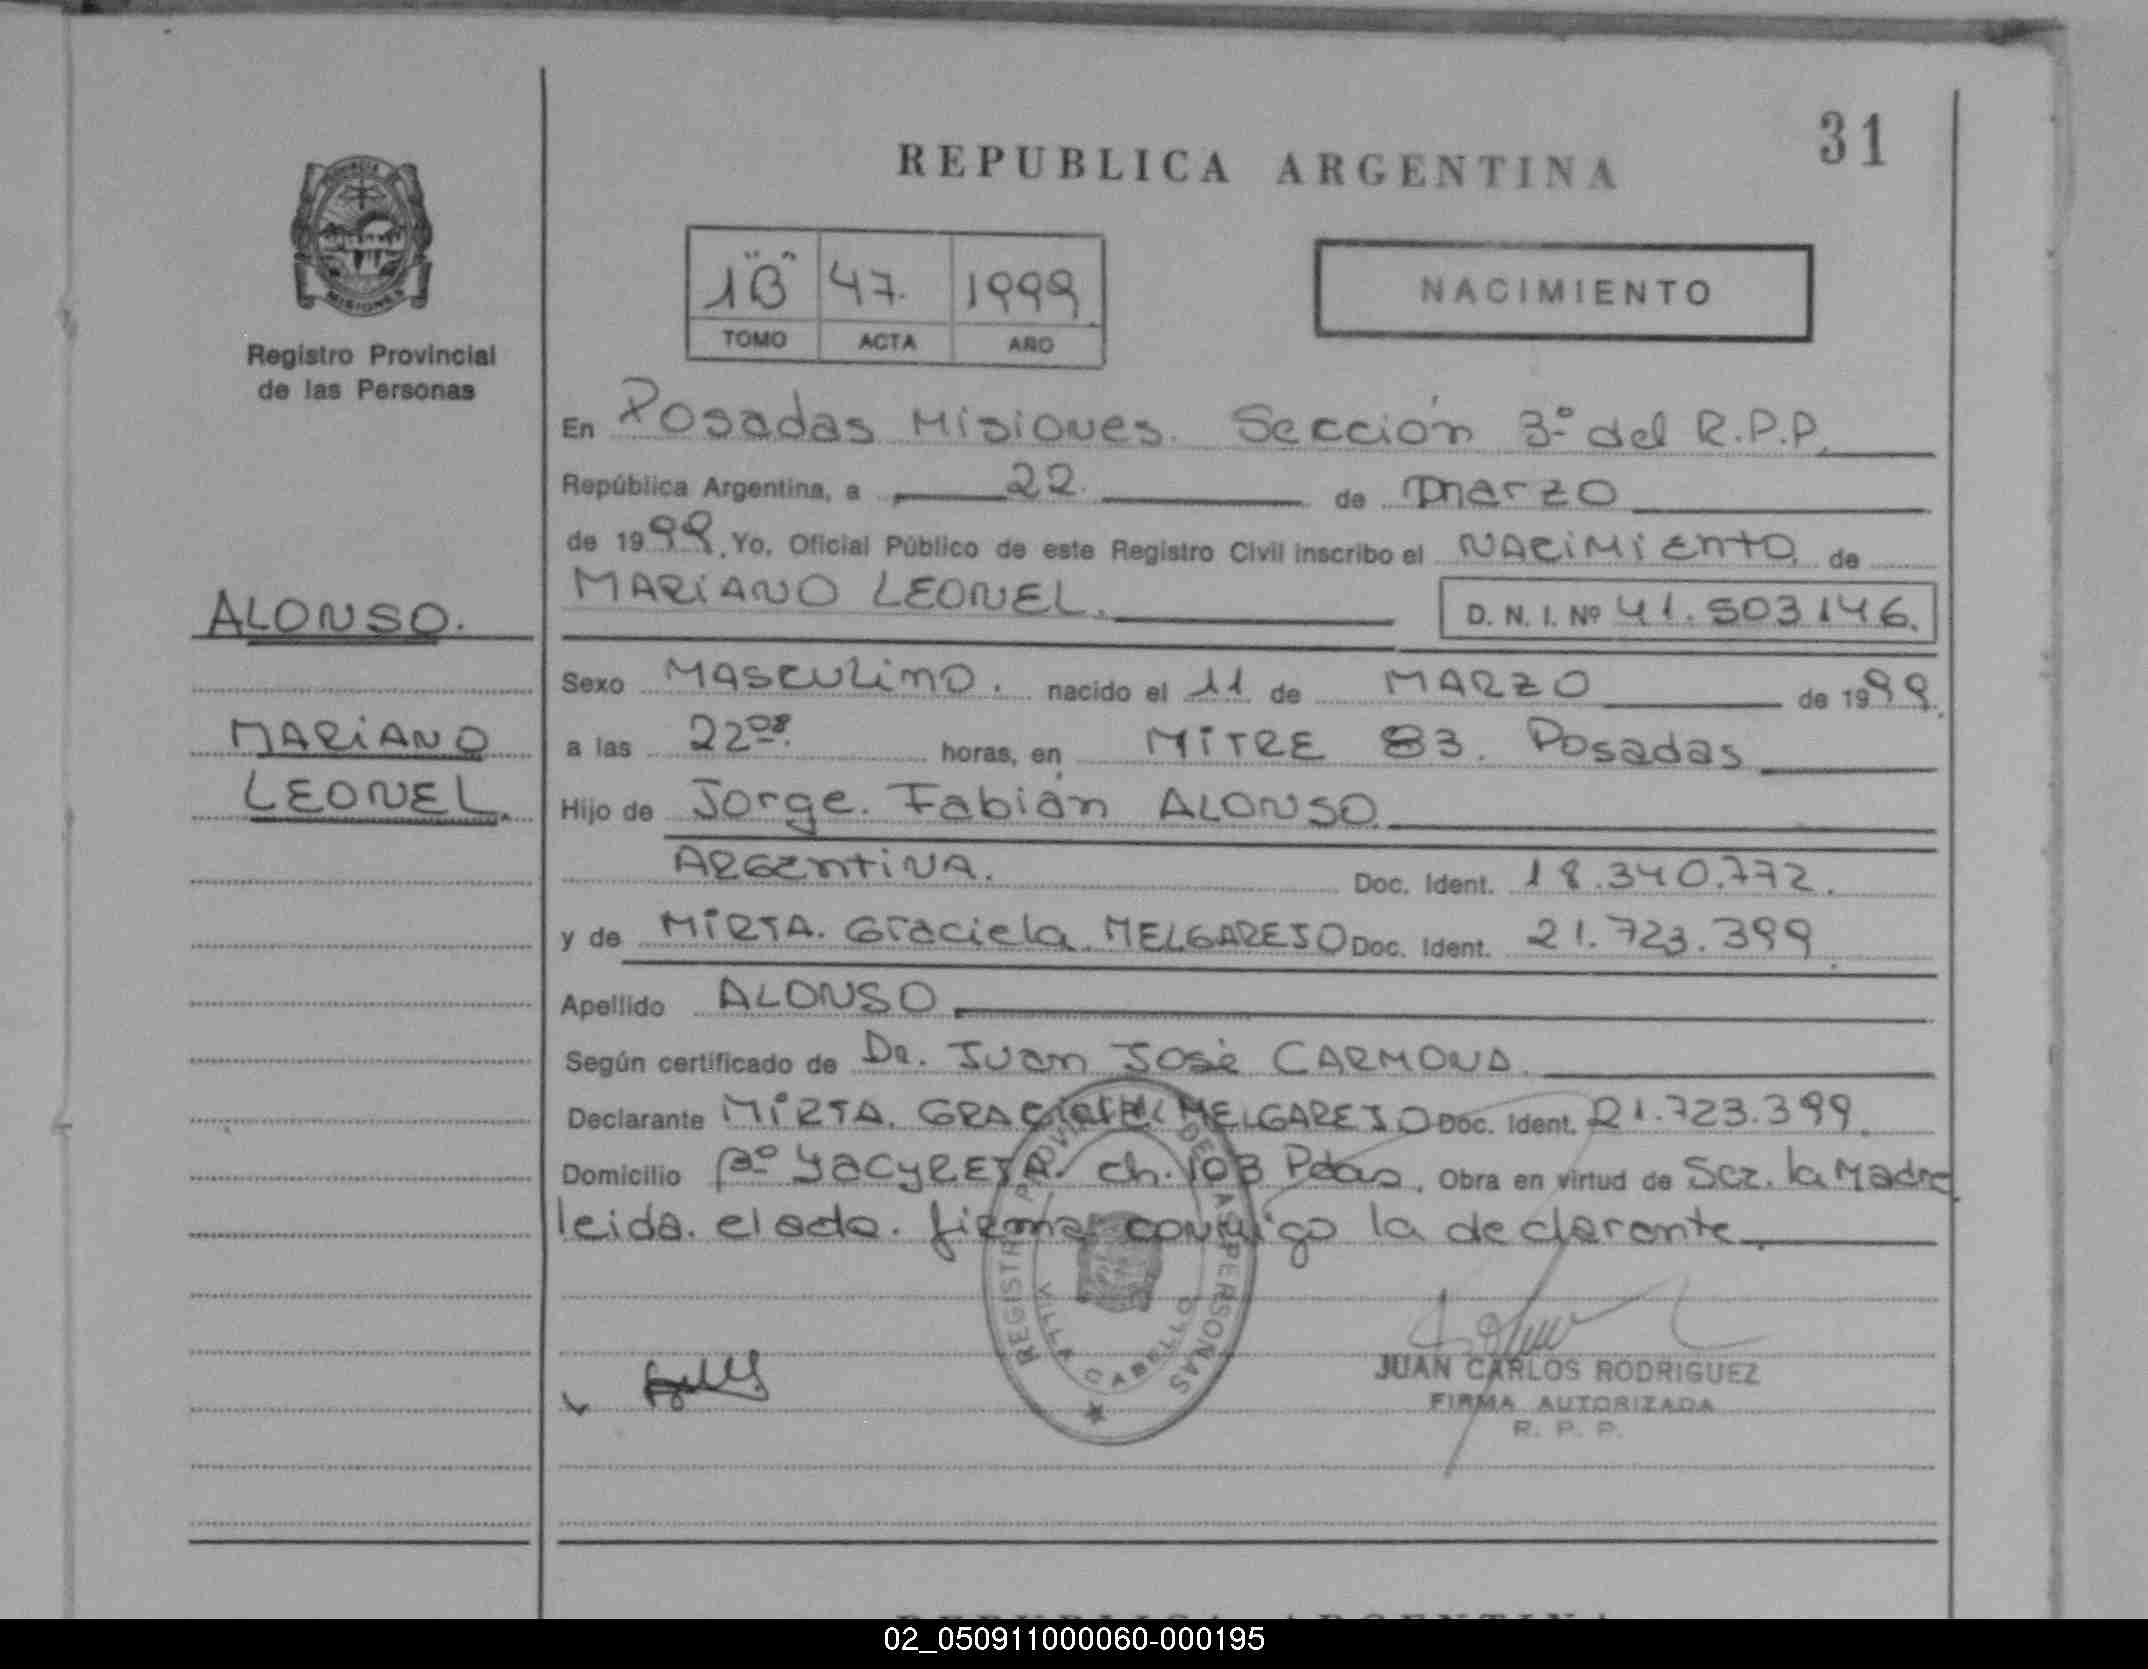 31
REPUBLICA ARGENTINA
PROVINCIA
MISIONES
Registro Provincial
de las Personas
1"B" 47. 1999.
TOMO ACTA AÑO
NACIMIENTO
En Posadas Misiones. Sección 3º del R.P.P.
República Argentina, a 22. de marzo
de 1999. Yo, Oficial Público de este Registro Civil inscribo el NACIMIENTO. de
MARIANO LEONEL.
D. N. I. Nº 41.503146.
ALONSO.
MARIANO
LEONEL.
Sexo MASCULINO. nacido el 11 de MARZO de 1999.
a las 22 08. horas, en MITRE 83. Posadas
Hijo de Jorge. Fabián ALONSO.
ARGENTINA. Doc. Ident. 18.340.772.
y de MIRTA. Graciela MELGAREJO Doc. Ident. 21.723.399.
Apellido ALONSO
Según certificado de Dr. Juan José CARMONA.
Declarante MIRTA. GRACIELA MELGAREJO Doc. Ident. 21.723.399.
Domicilio Bº YACYRETA. ch. 103 Pdas. Obra en virtud de Scz. la Madre
leida. el acta. firma conmigo la declarante.
REGISTRO PROVINCIAL DE LAS PERSONAS
VILLA CABELLO
JUAN CARLOS RODRIGUEZ
FIRMA AUTORIZADA
R. P. P.
REPUBLICA ARGENTINA
02_050911000060-000195